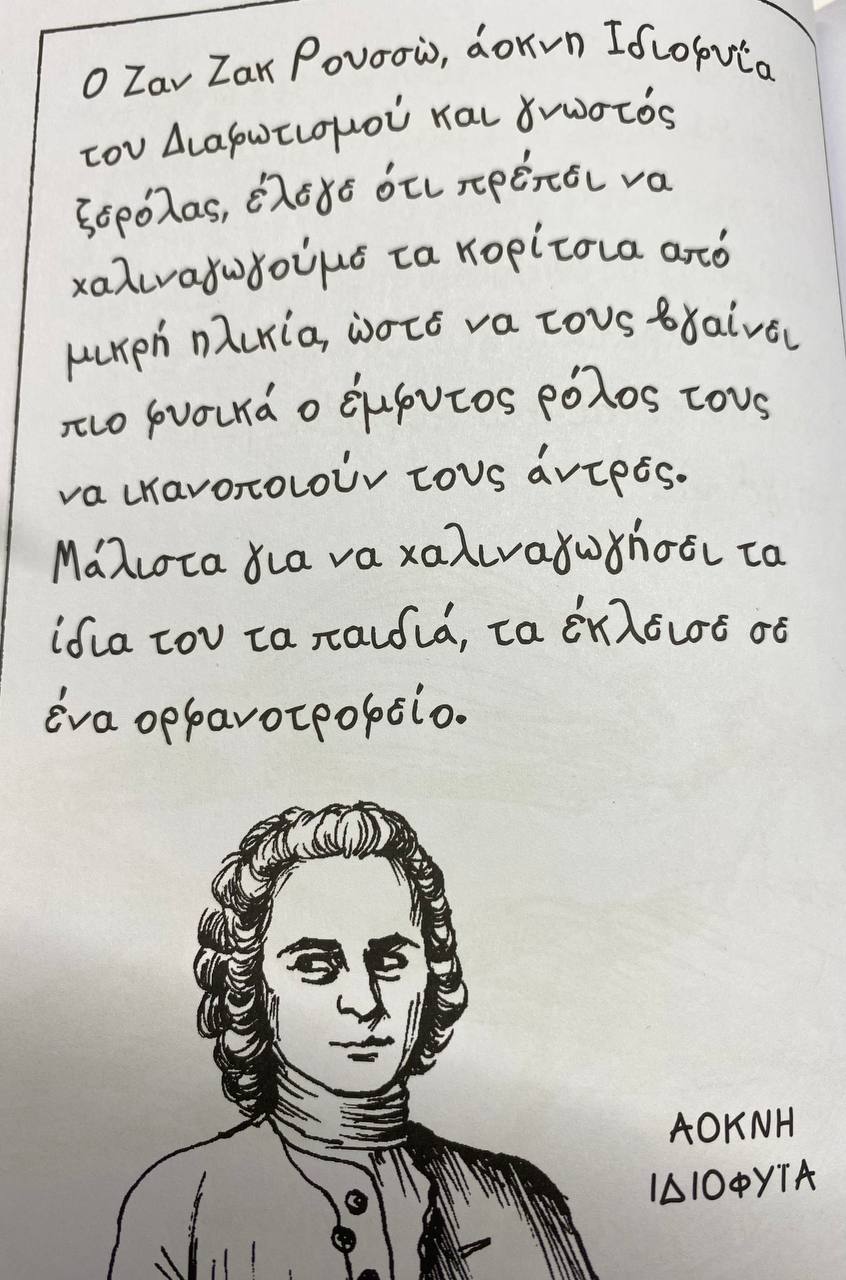 Ο Ζαν Ζακ Ρουσσώ, άοκνη Ιδιοφυΐα
του Διαφωτισμού και γνωστός
ξερόλας, έλεγε ότι πρέπει να
χαλιναγωγούμε τα κορίτσια από
μικρή ηλικία, ώστε να τους βγαίνει
πιο φυσικά ο έμφυτος ρόλος τους
να ικανοποιούν τους άντρες.
Μάλιστα για να χαλιναγωγήσει τα
ίδια του τα παιδιά, τα έκλεισε σε
ένα ορφανοτροφείο.
ΑΟΚΝΗ
ΙΔΙΟΦΥΪΑ